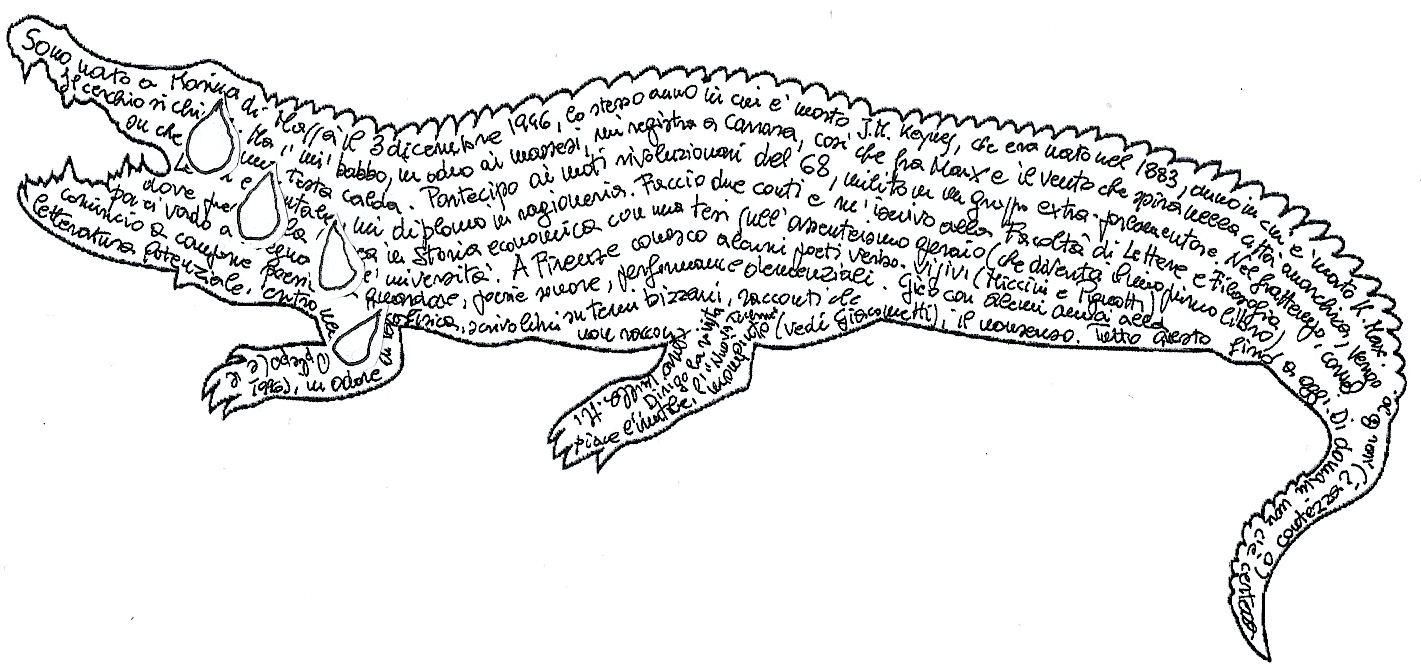 Sono nato a Marina di Massa il 3 dicembre 1946, lo stesso anno in cui è morto J.M. Keynes, che era nato nel 1883, anno in cui è morto K. Marx.
Il cerchio si chi Ma il mi' babbo, in odio ai massesi, mi registra a Carrara, così che fra Marx e il vento che spira nella città anarchica, vengo
su che una testa calda. Partecipo ai moti rivoluzionari del 68, milito in un gruppo extra-parlamentare. Nel frattempo,
dove fre mi diplomo in ragioneria. Faccio due conti e m'iscrivo alla Facoltà di Lettere e Filosofia,
poi ci vado a in Storia economica con una tesi sull'assenteismo operaio (che diventa il mio primo libro)
comincio a comporre poesi università. A Firenze conosco alcuni poeti verbo-visivi (Miccini e Pignotti)
letteratura potenziale, entro poesie sonore, performance demenziali. Gioco con alcuni amici alla
scrivo libri su temi bizzarri, racconti che
non raccon
Oplepo (e le
1946), in odore
Dirigo la rivista
Mi
piace l'inutile, l'incompiuto (vedi Giacometti), il nonsenso. Tutto questo fino a oggi. Di domani non
c'è certezza